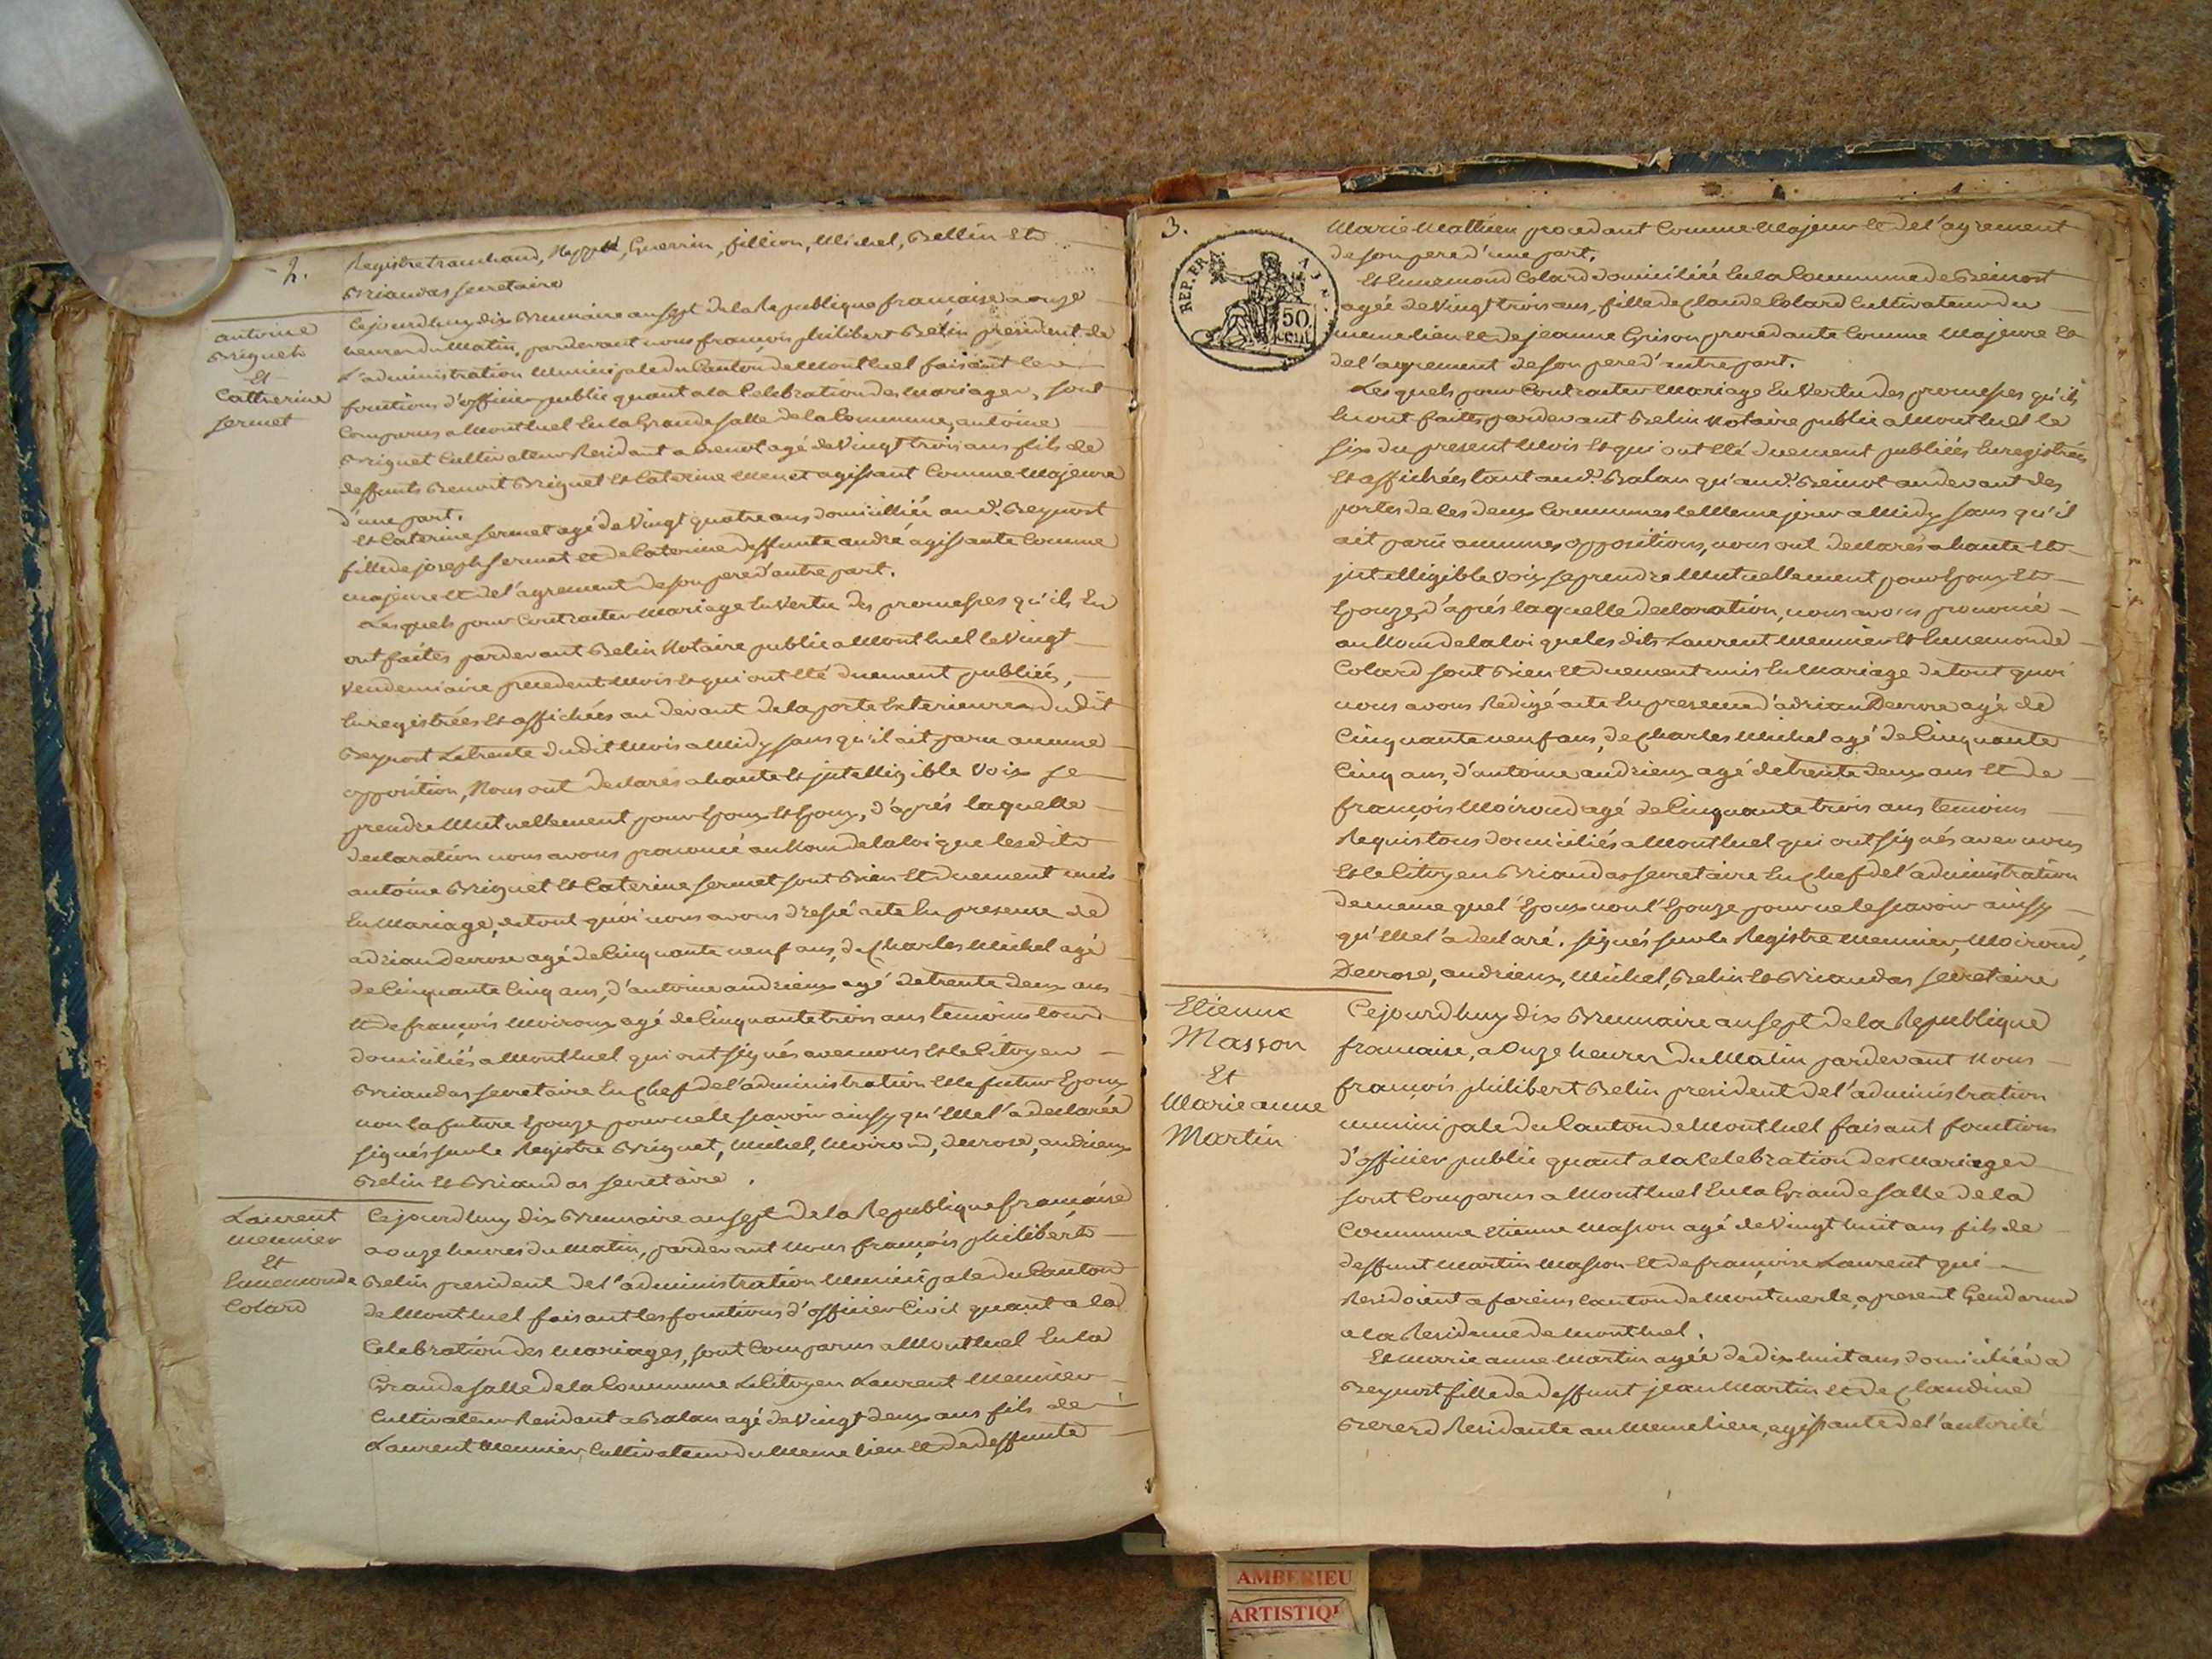 2.
Registre tranchand, Guerrin, fillion, Michel, Bellin Et
Briandas secretaire
antoine
Briguet
Et
Catherine
sermet
Cejourdhuy dix Brumaire an sept de la Republique francaise a onze
heures du Matin, pardevant nous françois philibert Belin president de
L'administration Municipale du Canton de Montluel faisant les
fonctions d'officier public quant a la Celebration des Mariages, sont
Comparus a Montluel En la Grande salle de la Commune, antoine
Briguet Cultivateur Residant a agé de Vingt trois ans fils de
deffunts Benoit Briguet Et Caterine Menet agissant Comme Majeure
d'une part.
Et Caterine sermet agé de Vingt quatre ans domicilliée aud.t Beynost
fille de joseph sermet et de Caterine deffunte andré agissante Comme
majeure et de l'agrement de son pere d'autre part.
Lesquels pour Contracter Mariage En Vertu des promesses qu'ils En
ont faites pardevant Belin Notaire public a Montluel le Vingt
Vendemiaire precedent Mois Et qui ont Eté duement publiés,
Enregistrées Et affichées au devant de la porte Exterieure dudit
Beynost Le trente dudit Mois a Midy sans qu'il ait paru aucune
opposition, Nous ont declarés a haute Et jntelligible Voix se
prendre Mutuellement pour Epoux Et Epoux, d'aprés laquelle
declaration nous avons prononcé au Nom de la loi que lesdits
antoine Briguet Et Caterine sermet sont Bien Et duement unis
En Mariage, de tout quoi nous avons dressé acte En presence de
adrian Decrose agé de Cinquante neuf ans, de Charles Michel agé
de Cinquante Cinq ans, d'antoine andrieux agé de trente deux ans
Et de françois Moiroux agé de Cinquante trois ans temoins tous
domiciliés a Montluel qui ont signés avec nous Et le Citoyen
Briandas secretaire En Chef de l'administration Et le futur Epoux
non la future Epouze pour ne le scavoir ainsy qu'Elle l'a declarée
signés sur le Registre Briguet, Michel, Moiroud, decrose, andrieux
Belin Et Briandas secretaire.
Laurent
Meunier
Et
Ennemonde
Colard
Cejourdhuy dix Brumaire an sept de la Republique francaise
a onze heures du Matin, pardevant Nous françois philibert
Belin president de l'administration Municipale du Canton
de Montluel faisant les fonctions d'officier Civil quant a la
Celebration des Mariages, sont Comparus a Montluel En la
Grande salle de la Commune Le Citoyen Laurent Meunier
Cultivateur Residant a Balan agé de Vingt deux ans fils de
Laurent Meunier, Cultivateur du Meme lieu Et de deffunte
3.
REP. FRA
AIN
50
CENT
Marie Mathieu procedant Comme Majeur Et de l'agrement
de son pere d'une part.
Et Ennemond Colard domiciliée En la Commune de Beinost
agée de Vingt trois ans, fille de Claude Colard Cultivateur du
meme lieu Et de jeanne Grison procedante Comme Majeure Et
de l'agrement de son pere d'autre part.
Lesquels pour Contracter Mariage En Vertu des promesses qu'ils
En ont faites pardevant Belin Notaire public a Montluel le
six du present Mois Et qui ont Eté duement publiées Enregistrées
Et affichées tant aud.t Balan qu'aud.t Beinot au devant des
portes de Ces deux Communes le Meme jour a Midy sans qu'il
ait paru aucunes oppositions, nous ont declarés a haute Et
jntelligible Voix se prendre Mutuellement pour Epoux Et
Epouze, d'aprés laquelle declaration, nous avons prononcé
au Nom de la loi que lesdits Laurent Meunier Et Ennemonde
Colard sont Bien Et duement unis En Mariage de tout quoi
nous avons Redigé acte En presence d'adrian Decrose agé de
Cinquante neuf ans, de Charles Michel agé de Cinquante
Cinq ans, d'antoine andrieux agé de trente deux ans Et de
françois Moiroud agé de Cinquante trois ans temoins
Requis tous domiciliés a Montluel qui ont signés avec nous
Et le Citoyen Briandas secretaire En Chef de l'administration
de meme que l'Epoux non l'Epouze pour ne le scavoir ainsy
qu'Elle l'a declaré. signés sur le Registre Meunier, Moiroud,
Decrose, andrieux, Michel, Belin Et Briandas secretaire
Etienne
Masson
Et
Marie anne
Martin
Cejourdhuy dix Brumaire an sept de la Republique
francaise, a Onze heures du Matin pardevant Nous
françois philibert Belin president de l'administration
municipale du Canton de Montluel faisant fonctions
d'officier public quant a la Celebration des Mariages
sont Comparus a Montluel En la Grande salle de la
Commune Etienne Masson agé de Vingt huit ans fils de
deffunt Martin Masson Et de françoise Laurent qui
Residoient a fareins Canton de Montmerle, a present Gendarme
a la Residence de Montluel.
Et Marie anne Martin agée de dix huit ans domiciliée a
Beynost fille de deffunt jean Martin et de Claudine
Residante au Meme lieu, agissante de l'autorité
AMBERIEU
ARTISTIQ